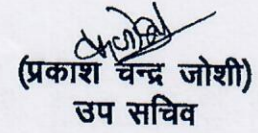 (प्रकाश चन्द्र जोशी)
उप सचिव